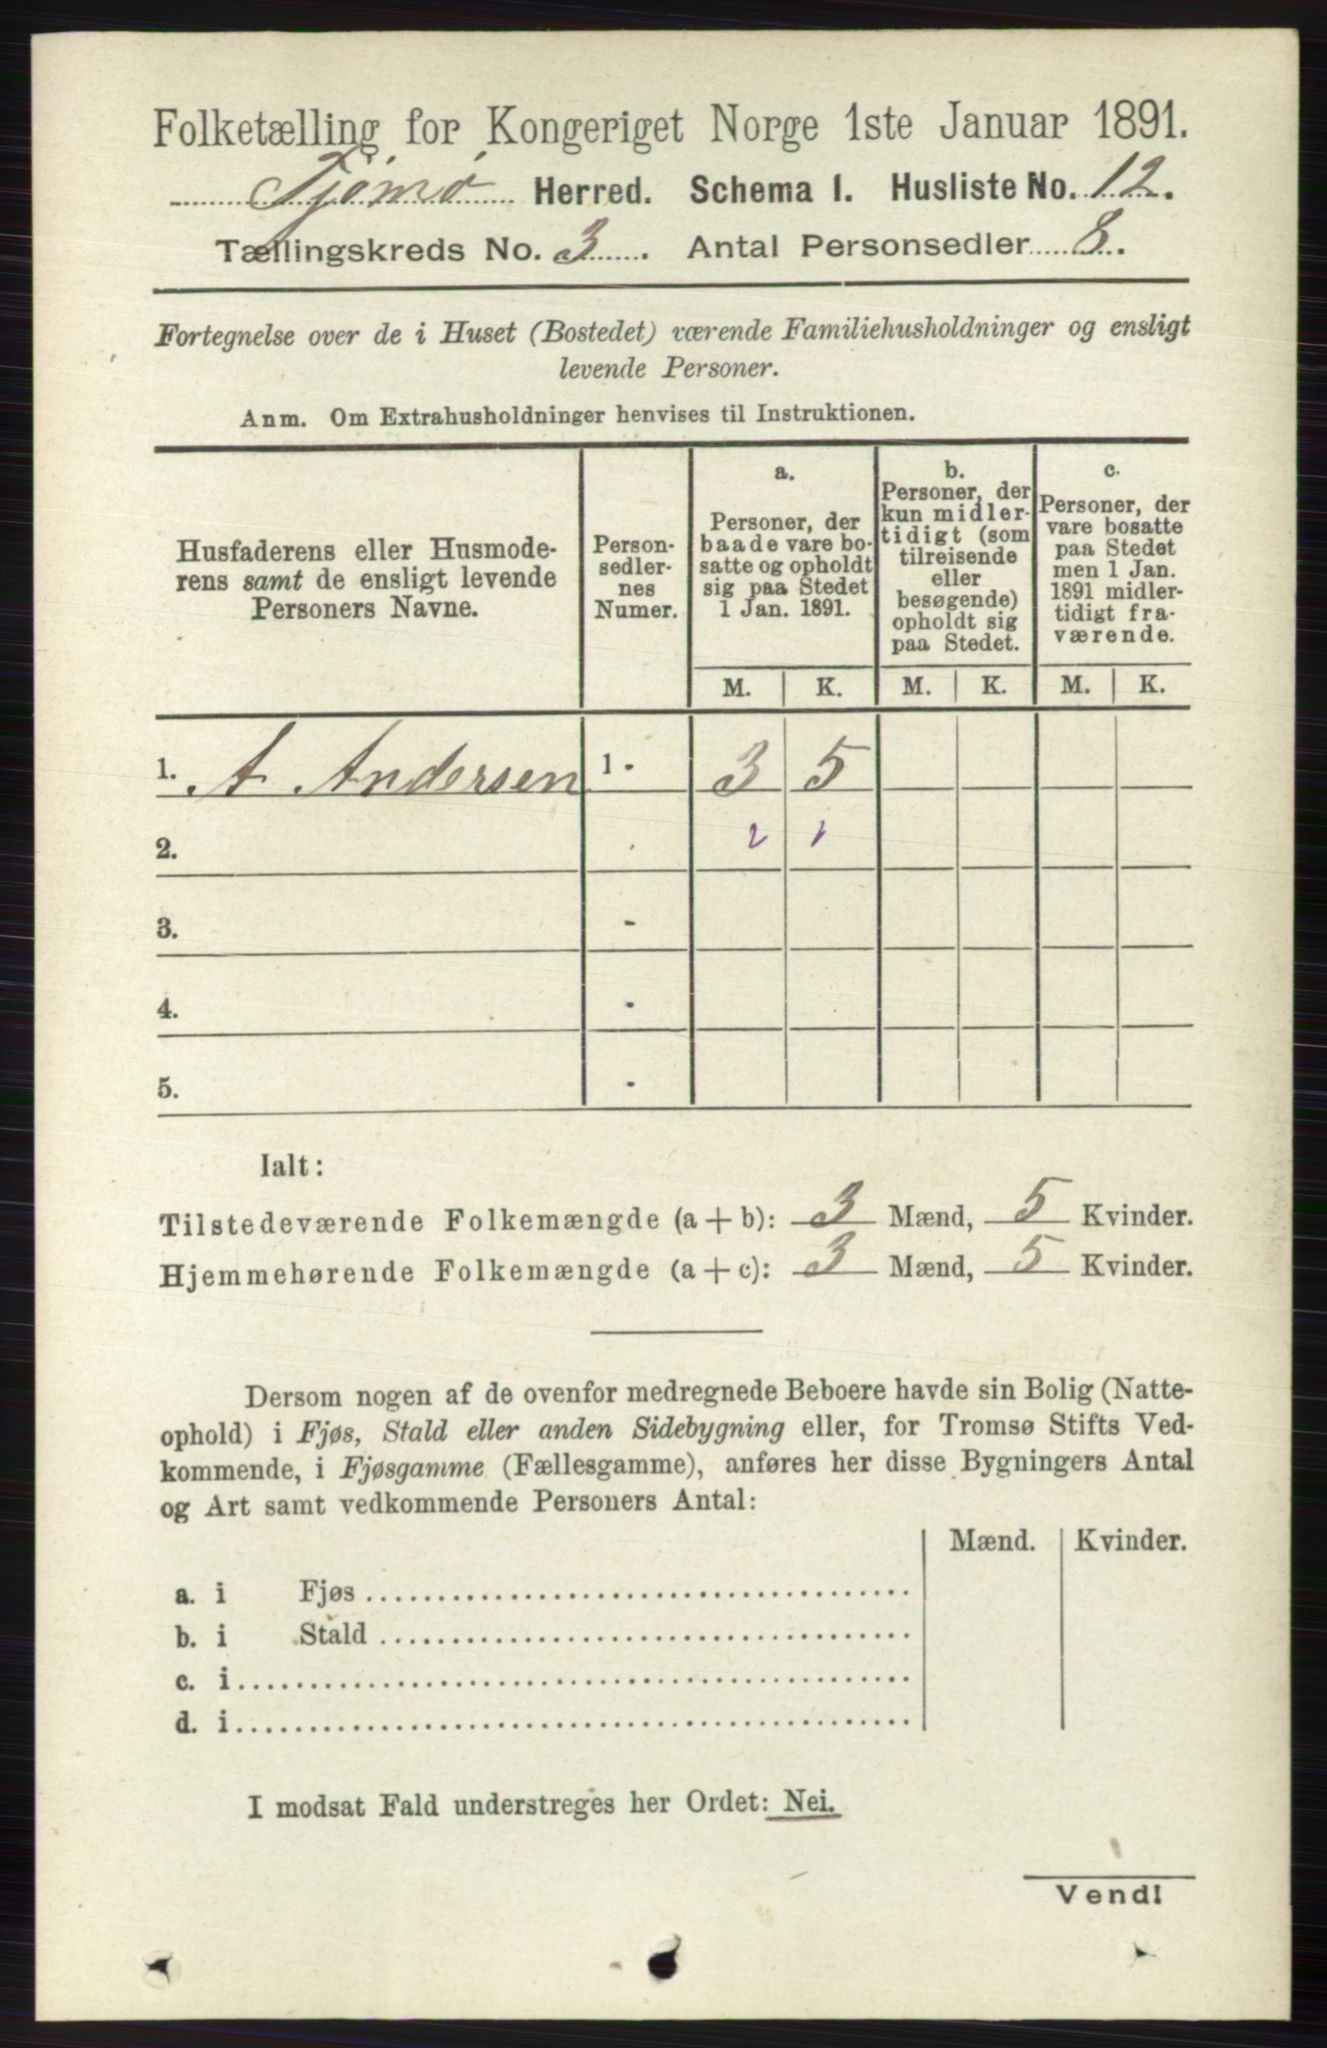 Folketælling for Kongeriget Norge 1ste Januar 1891.
Tjømø Herred. Schema 1. Husliste No. 12.
Tællingskreds No. 3. Antal Personsedler 8.
Fortegnelse over de i Huset (Bostedet) værende Familiehusholdninger og ensligt
levende Personer.
Anm. Om Extrahusholdninger henvises til Instruktionen.
Husfaderens eller Husmode-
rens samt de ensligt levende
Personers Navne.
Person-
sedler-
nes
Numer.
a.
Personer, der
baade vare bo-
satte og opholdt
sig paa Stedet
1 Jan. 1891.
b.
Personer, der
kun midler-
tidigt (som
tilreisende
eller
besøgende)
opholdt sig
paa Stedet.
c.
Personer, der
vare bosatte
paa Stedet
men 1 Jan.
1891 midler-
tidigt fra-
værende.
M. K. M. K. M. K.
1. A. Andersen 1 - 3 5
2. . 2 1
3. -
4. -
5. -
Ialt:
Tilstedeværende Folkemængde (a + b): 3 Mænd, 5 Kvinder.
Hjemmehørende Folkemængde (a + c): 3 Mænd, 5 Kvinder.
Dersom nogen af de ovenfor medregnede Beboere havde sin Bolig (Natte-
ophold) i Fjøs, Stald eller anden Sidebygning eller, for Tromsø Stifts Ved-
kommende, i Fjøsgamme (Fællesgamme), anføres her disse Bygningers Antal
og Art samt vedkommende Personers Antal:
Mænd. Kvinder.
a. i Fjøs
b. i Stald
c. i
d. i
I modsat Fald understreges her Ordet: Nei.
Vend!